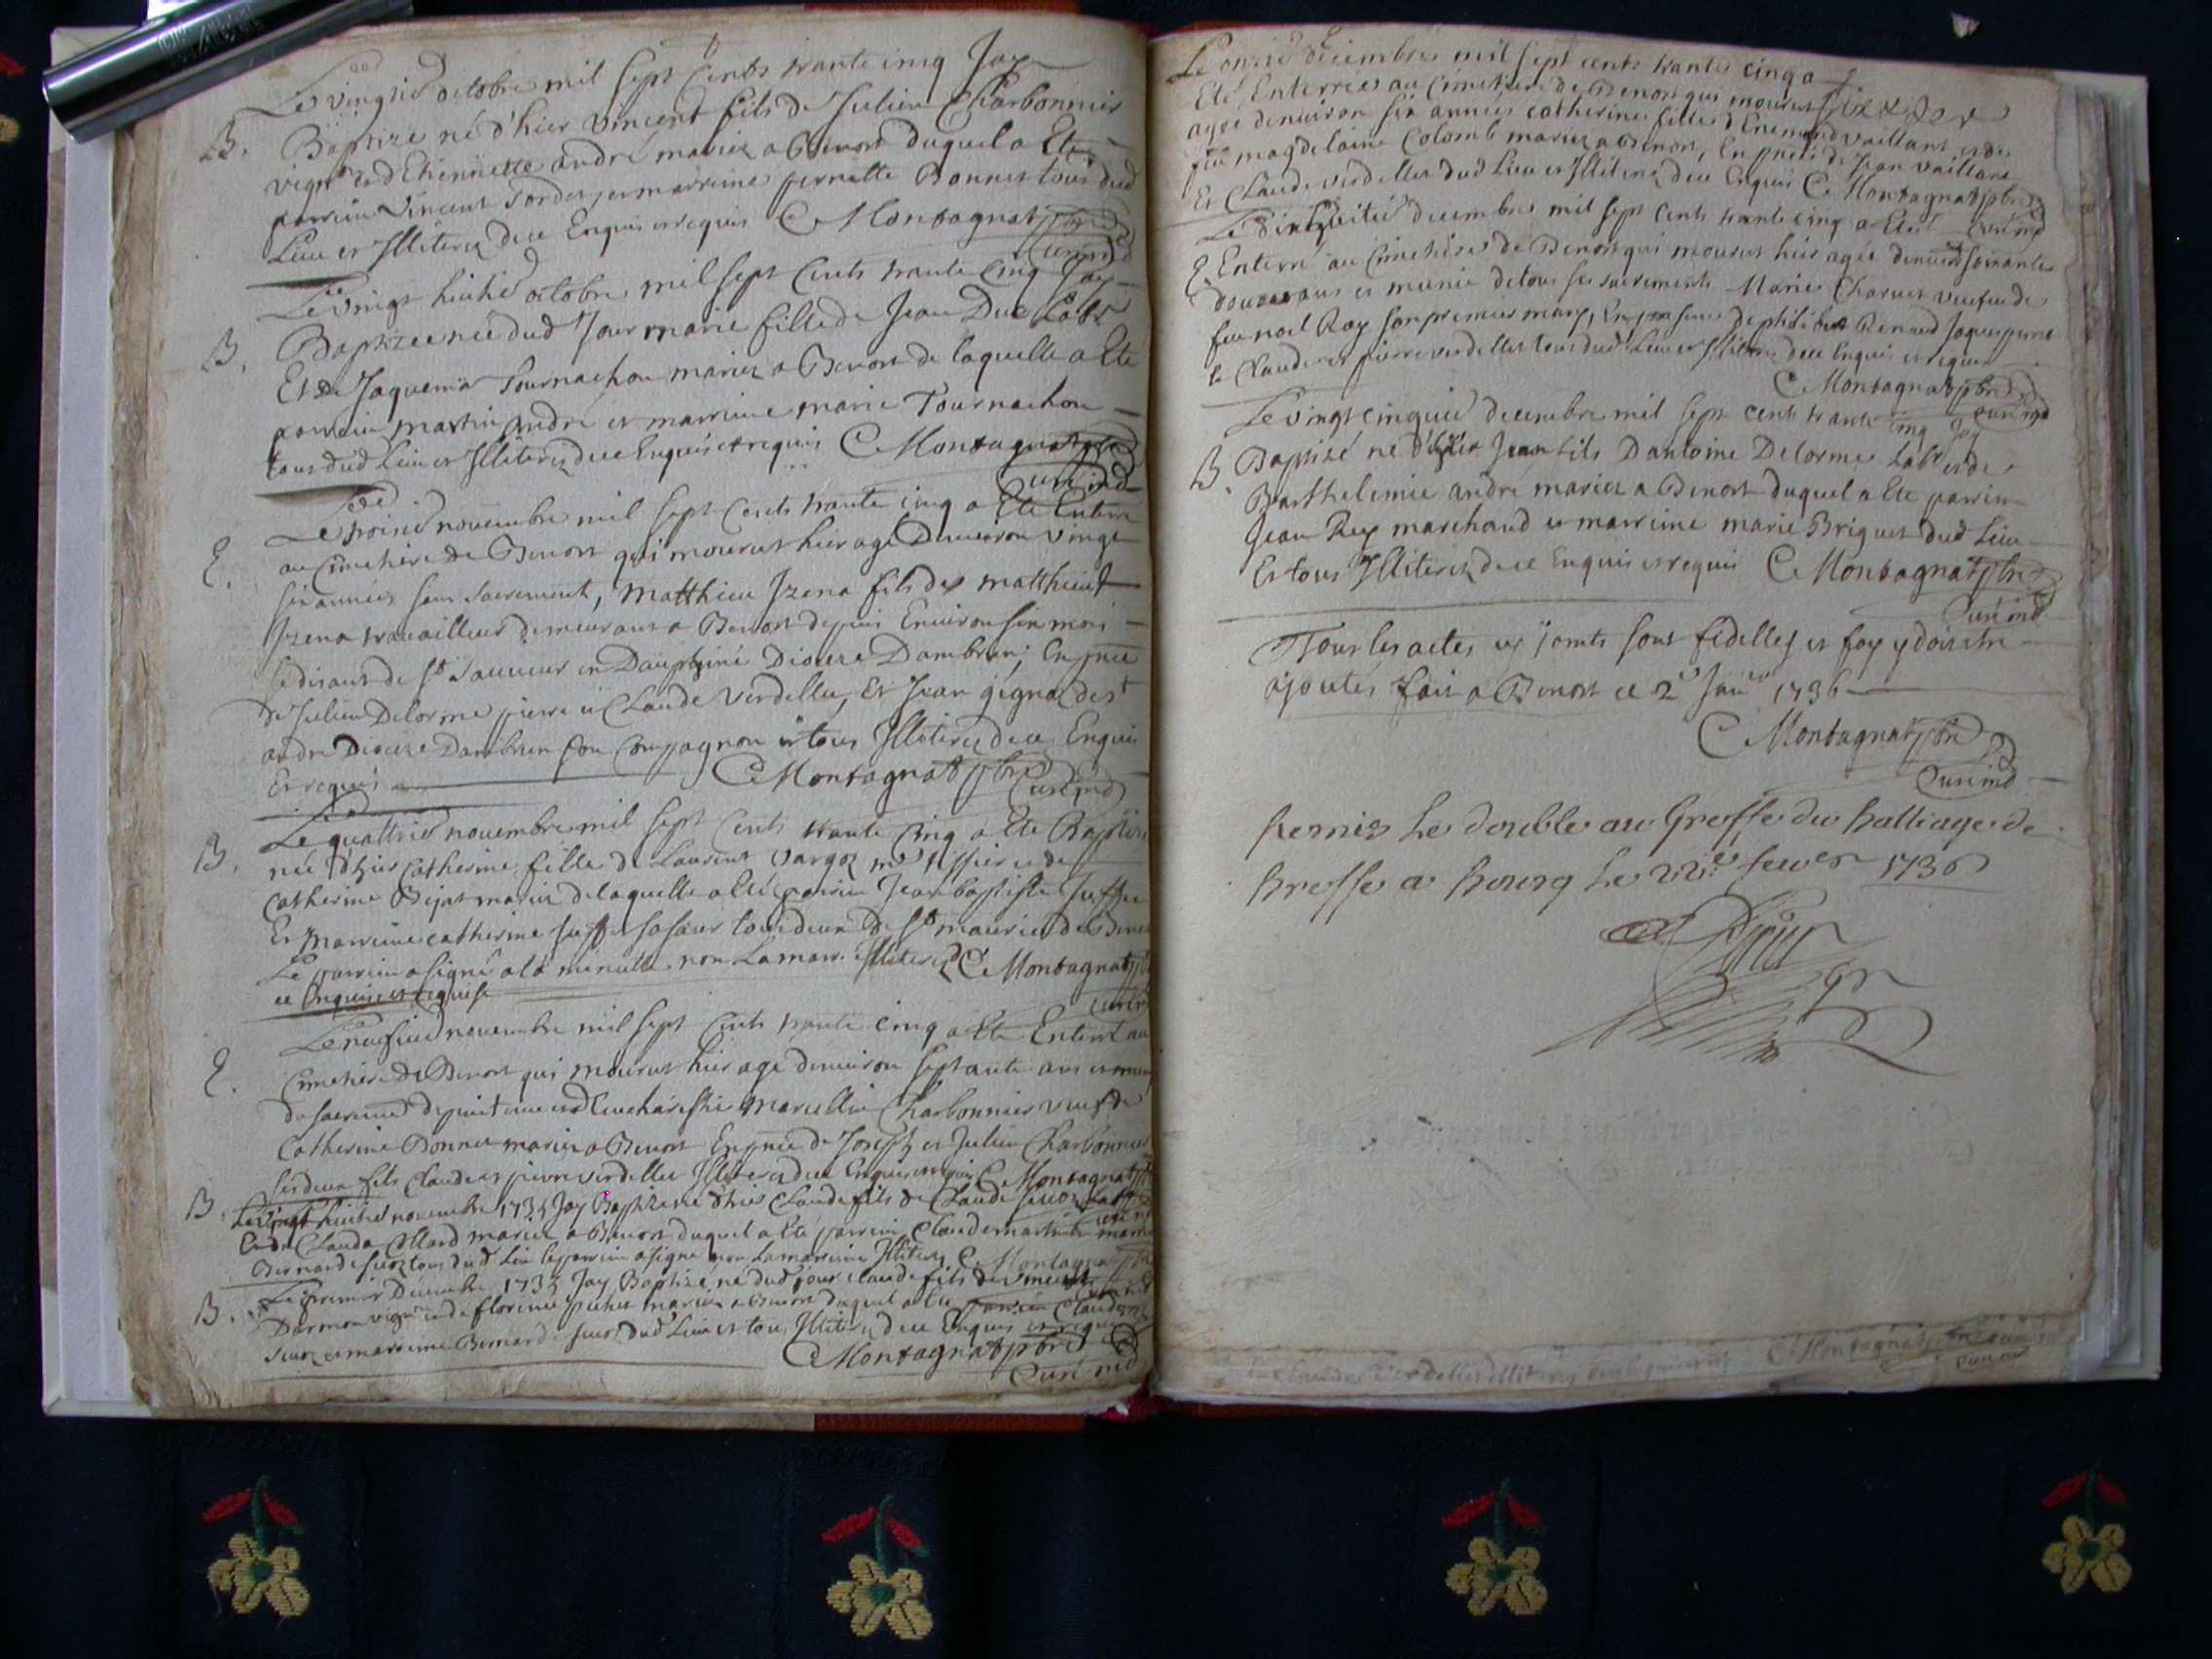 Le vingtie octobre mil sept cents trante cinq Jay
B. Baptizé né d'hier Vincent fils de Julien Charbonnier
vign^on et d'Etiennette andré mariez a Benost duquel a Eté
parrin Vincent et marrine pernette Bonnet tous dud
Lieu et Illiterez de ce Enquis et requis C Montagnat pbre
Curé md
Le vingt huitie octobre mil sept Cents trante Cinq Jay
B. Baptizée née dud Jour marie fille de Jean Duc Lab^r
Et de Jaquema Tournachon mariez a Benost de laquelle a Eté
parrin martin André et marrine marie Tournachon
tous dud Lieu et Illiterez de ce Enquis et requis C Montagnat pbre
Curé md
Le troisie novembre mil sept Cents trante cinq a Eté Enterré
E. au Cimetiere de Benost qui mourut hier agé Denviron vingt
six années sans Sacrement, Matthieu Izena fils de Matthieu
Izena travailleur demeurant a Benost depuis Environ six mois
se disant de St Sauveur en Dauphiné Dioceze Dambrun, En pnce
de Julien Delorme pierre et Claude Verdellet, Et Jean gegnoz de St
andré Dioceze Dambrun son Compagnon et tous Illiterez de ce Enquis
Et requis C Montagnat pbre
Curé md
Le quattrie novembre mil sept Cents trante Cinq a Eté Baptizée
B. née d'hier Catherine fille de Laurent Vargoz m^e tissier et de
Catherine Bijat mariez de laquelle a Eté parrin Jean baptiste
Et Marrine catherine sa sœur tous deux de St maurice de
Le parrin a signé a la minutte non La marr. Illiterez C Montagnat pbre
ce Enquise et requise
Curé md
Le neufvie novembre mil sept Cents trante cinq a Eté Enterré au
E. Cimetiere de Benost qui mourut hier agé denviron septante ans et muni
du sacrement de penitence et d'Eucharistie Marcellin Charbonnier veuf de
Catherine Bonnet mariez a Benost En pnce de Joseph et Julien Charbonnier
ses deux fils Claude et pierre verdellet Illiterez de ce Enquis et requis C Montagnat pbre
B. Le vingt huitie novembre 1735 Jay Baptizé né d'hier Claude fils de Claude
Et de Claude Collard mariez a Benost duquel a Eté parrin Claude
Bernarde tous dud Lieu le parrin a signé non La marrine Illiterez C Montagnat pbre
Le premier Decembre 1735 Jay Baptizé né dud jour claude fils de vincent
B. Darmon vign^on et de florence mariez a Benost duquel a Eté parrin Claude
et marrine Bernarde dud Lieu et tous Illiterez de ce Enquis et requis
C Montagnat pbre
Curé md
Le onzie decembre mil sept cents trante cinq a
Eté Enterrée au Cimetiere de Benost qui mourut hier
agée denviron six années catherine fille d'Enemond vaillant et de
feu magdelaine Colomb mariez a Benost, En pnce de Jean vaillant
Et Claude verdellet dud Lieu et Illiterez de ce Enquis C Montagnat pbre
Curé md
Le dixhuitie decembre mil sept Cents trante cinq a Eté
E. Enterré au Cimetiere de Benost qui mourut hier agée denviron soixante
douze ans et munie de tous ses sacrements Marie Charvet veufve de
feu noel Roy son premier mary, En presence de philibert Renaud Jaques
Claude et pierre verdellet tous dud Lieu et Illiterez de ce Enquis et requis
C Montagnat pbre
Curé md
Le vingt cinquie decembre mil sept cents trante cinq Jay
B. Baptizé né d'hier Jean fils Dantoine Delorme Lab^r et de
Barthelemie andré mariez a Benost duquel a Eté parrin
Jean Rey marchand et marrine marie Briguet dud Lieu
Et tous Illiterez de ce Enquis et requis C Montagnat pbre
Curé md
Tous les actes cy joints sont fidelles et foy y doit etre
ajoutée fait a Benost ce 2^e Janv 1736
C Montagnat pbre
Curé md
Remis Le double au Greffe du balliage de
bresse a bourg Le 22^e fevrier 1736